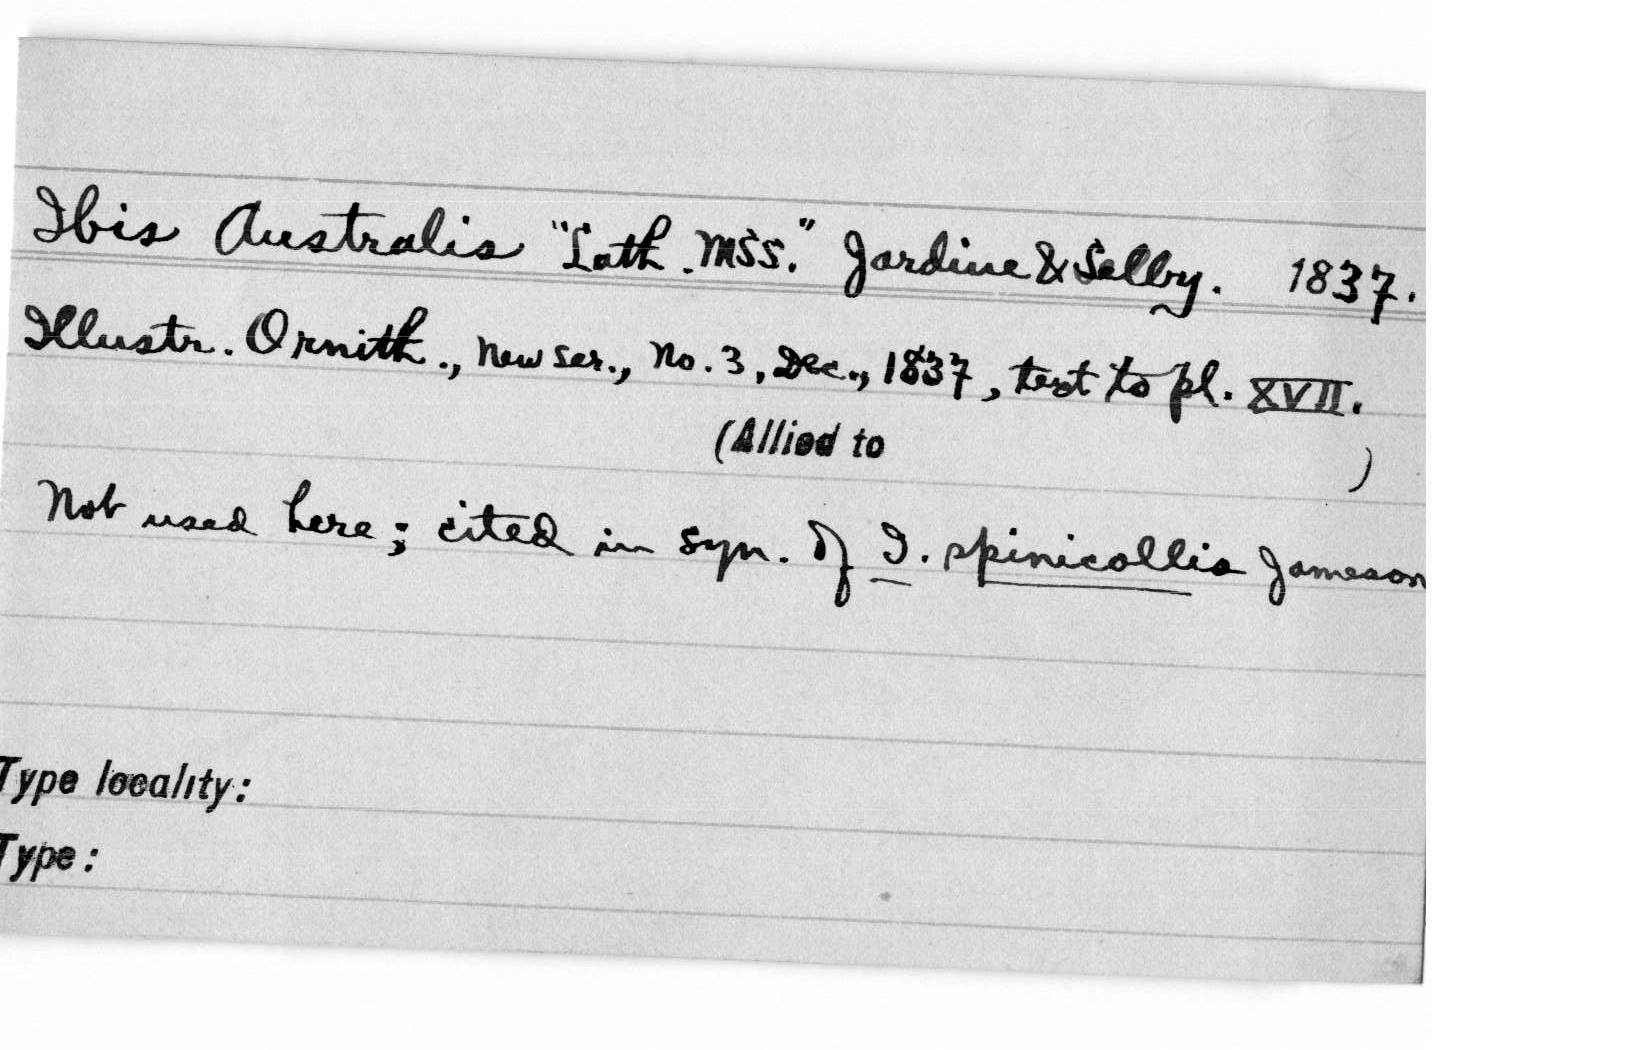 Ibis Australis "Lath. MSS." Jardine & Selby. 1837.
Illustr. Ornith., new ser., no. 3, Dec., 1837, text to pl. XVII.
(Allied to )
Not used here; cited in syn. of I. spinicollis Jameson
Type locality:
Type: